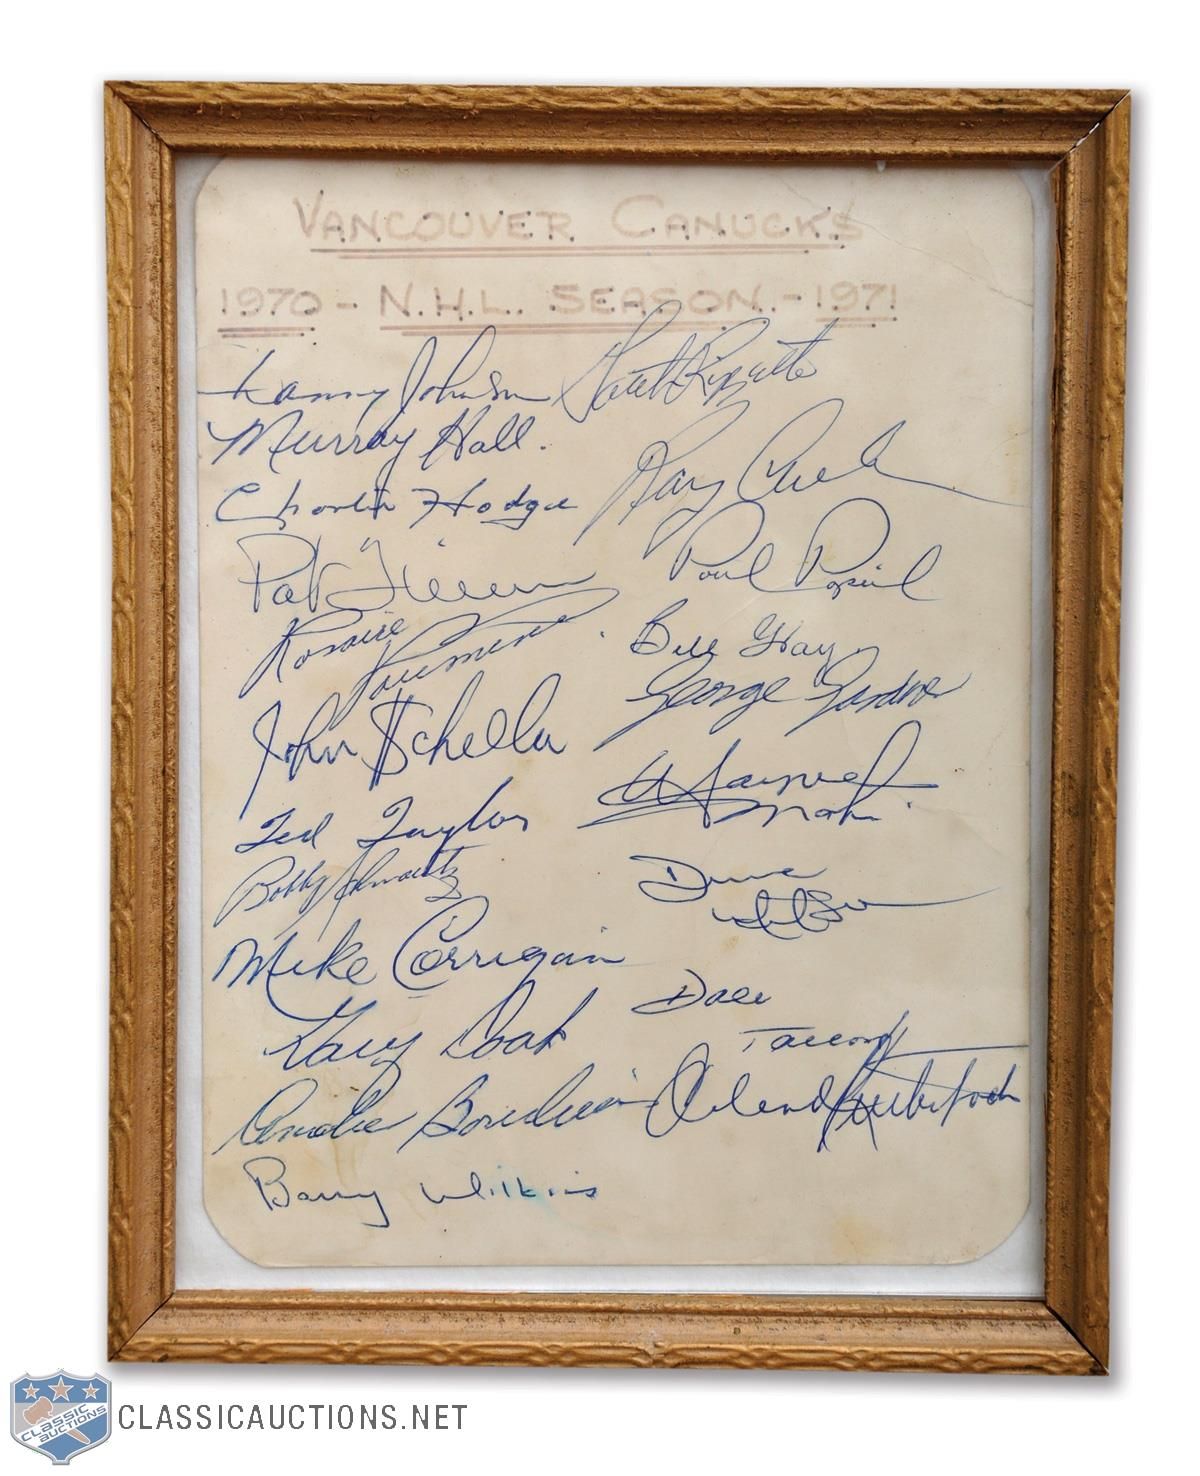 VANCOUVER CANUCKS
1970 - N.H.L. SEASON. - 1971
Danny Johnson
Murray Hall.
Charlie Hodge
Gary
Pat
Paul Popiel
Rosaire Paiement
Bill Gray
George Gardner
John Schella
Wayne Maki
Ted Taylor
Bobby Schmautz
Dune Wilson
Mike Corrigan
Dale Tallon
Gary Doak
Andre Boudrias
Orland Kurtenbach
Barry Wilkins
CLASSIC AUCTIONS
CLASSICAUCTIONS.NET